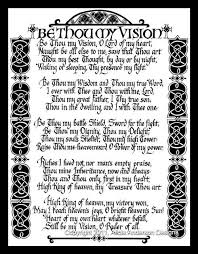 BE THOU MY VISION
Be Thou my Vision, O Lord of my heart,
Nought be all else to me, save that Thou art
Thou my best Thought, by day or by night,
Waking or sleeping, Thy presence my light.
Be Thou my Wisdom and Thou my true Word,
I ever with Thee and Thou with me, Lord,
Thou my great Father, I Thy true son,
Thou in me dwelling, and I with Thee one.
Be Thou my battle Shield, Sword for the fight,
Be Thou my Dignity, Thou my Delight;
Thou my soul's Shelter, Thou my high Tower:
Raise Thou me heavenward O Power of my power.
Riches I heed not, nor man's empty praise,
Thou mine Inheritance, now and always
Thou and Thou only, first in my heart,
High King of heaven, my Treasure Thou art
High King of heaven, my victory won,
May I reach heaven's joys, O bright heaven's Sun!
Heart of my own heart whatever befall,
Still be my Vision, O Ruler of all.
Copyright
Designs